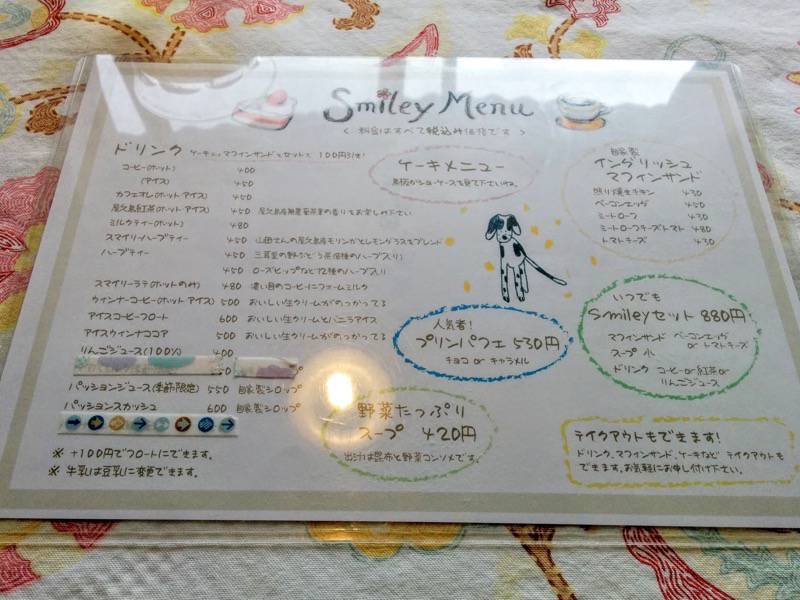 Smiley Menu
< 料金はすべて税込み価格です >
ドリンク ケーキ、マフィンサンドとセットで 100円引き!
コーヒー(ホット) 400
(アイス) 450
カフェオレ(ホット アイス) 450
屋久島紅茶(ホット アイス) 450 屋久島産無農薬茶葉の香りをお楽しみ下さい
ミルクティー(ホット) 480
スマイリーハーブティー 450 山田さんの屋久島産モリンガとレモングラスをブレンド
ハーブティー 450
450 ローズヒップなど12種のハーブ入り
スマイリーラテ(ホットのみ) 480 濃い目のコーヒーにフォームミルク
ウィンナーコーヒー(ホット アイス) 500 おいしい生クリームがのっかってる
アイスコーヒーフロート 600 おいしい生クリームとバニラアイス
アイスウィンナココア 500 おいしい生クリームがのっかってる
りんごジュース(100%) 400
パッションジュース(季節限定) 550 自家製シロップ
パッションスカッシュ 600 自家製シロップ
※ +100円でフロートにできます。
※ 牛乳は豆乳に変更できます。
ケーキメニュー
黒板かショーケースを見て下さいね。
人気者!
プリンパフェ 530円
チョコ or キャラメル
野菜たっぷり
スープ 420円
出汁は昆布と野菜コンソメです。
自家製
イングリッシュ
マフィンサンド
照り焼きチキン 430
ベーコンエッグ 450
ミートローフ 430
ミートローフチーズトマト 480
トマトチーズ 430
いつでも
Smileyセット 880円
マフィンサンド ベーコンエッグ
or トマトチーズ
スープ 小
ドリンク コーヒー or 紅茶 or
りんごジュース
テイクアウトもできます!
ドリンク、マフィンサンド、ケーキなど テイクアウトも
できます。お気軽にお申し付け下さい。